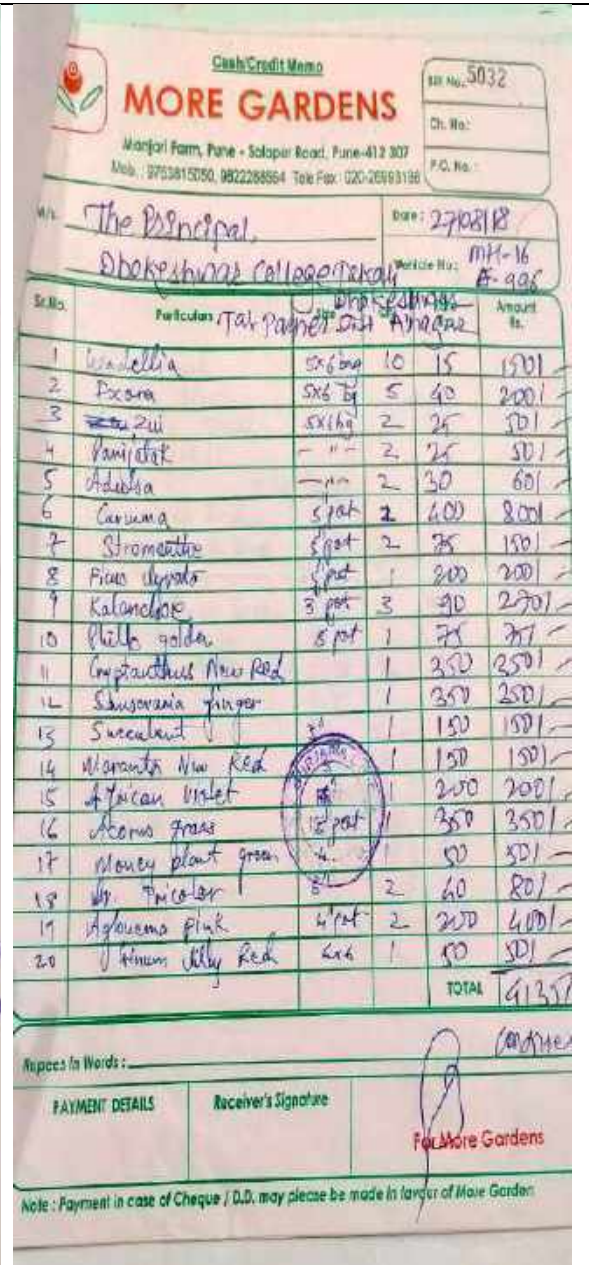 Cash/Credit Memo
MORE GARDENS
Manjari Farm, Pune - Solapur Road, Pune-412 307
Mob.: 9763815050, 9822288564 Tele Fax: 020-26993196
Bill No. 5032
Ch. No.:
P.O. No. :
M/s. The Principal,
Date : 27/08/18
Dhokeshwar College Takali
Vehicle No.: MH-16
Dhokeshwar
Tal Parner Dist A'nagar
Sr.No. Particulars Amount Rs.
1 Wadellia 5x6 bag 10 15 150/-
2 Ixora 5x6 bg 5 40 200/-
3 Zui 5x6 bg 2 25 50/-
4 Parijatak - " - 2 25 50/-
5 Adulsa - " - 2 30 60/-
6 5 pot 2 400 800/-
7 Stromanthe 5 pot 2 75 150/-
8 Ficus pot 1 200 200/-
9 Kalanchoe 3 pot 3 90 270/-
10 Phillo golden 5 pot 1 75 75/-
11 Cryptanthus New Red 1 350 350/-
12 ginger 1 350 350/-
13 Succulent 1 150 150/-
14 Maranta New Red 1 150 150/-
15 African Violet 1 200 200/-
16 Acorus grass pot 1 350 350/-
17 Money plant green 1 50 50/-
18 Tricolor 2 40 80/-
19 Aglonema Pink 4" pot 2 200 400/-
20 Red 4x6 1 50 50/-
TOTAL 4135/-
Rupees in Words :
PAYMENT DETAILS
Receiver's Signature
For More Gardens
Note : Payment in case of Cheque / D.D. may please be made in favour of More Garden